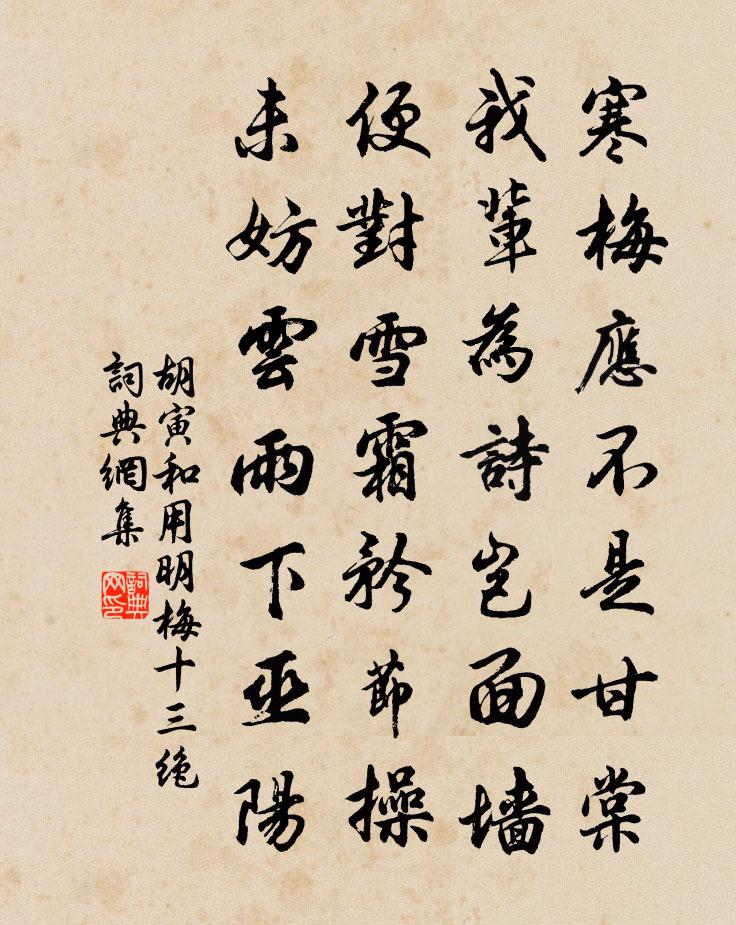 寒梅應不是甘棠
我輩為詩豈面墻
便對雪霜矜節操
未妨雲雨下巫陽
胡寅和用明梅十三絶
詞典網集
詞典网印